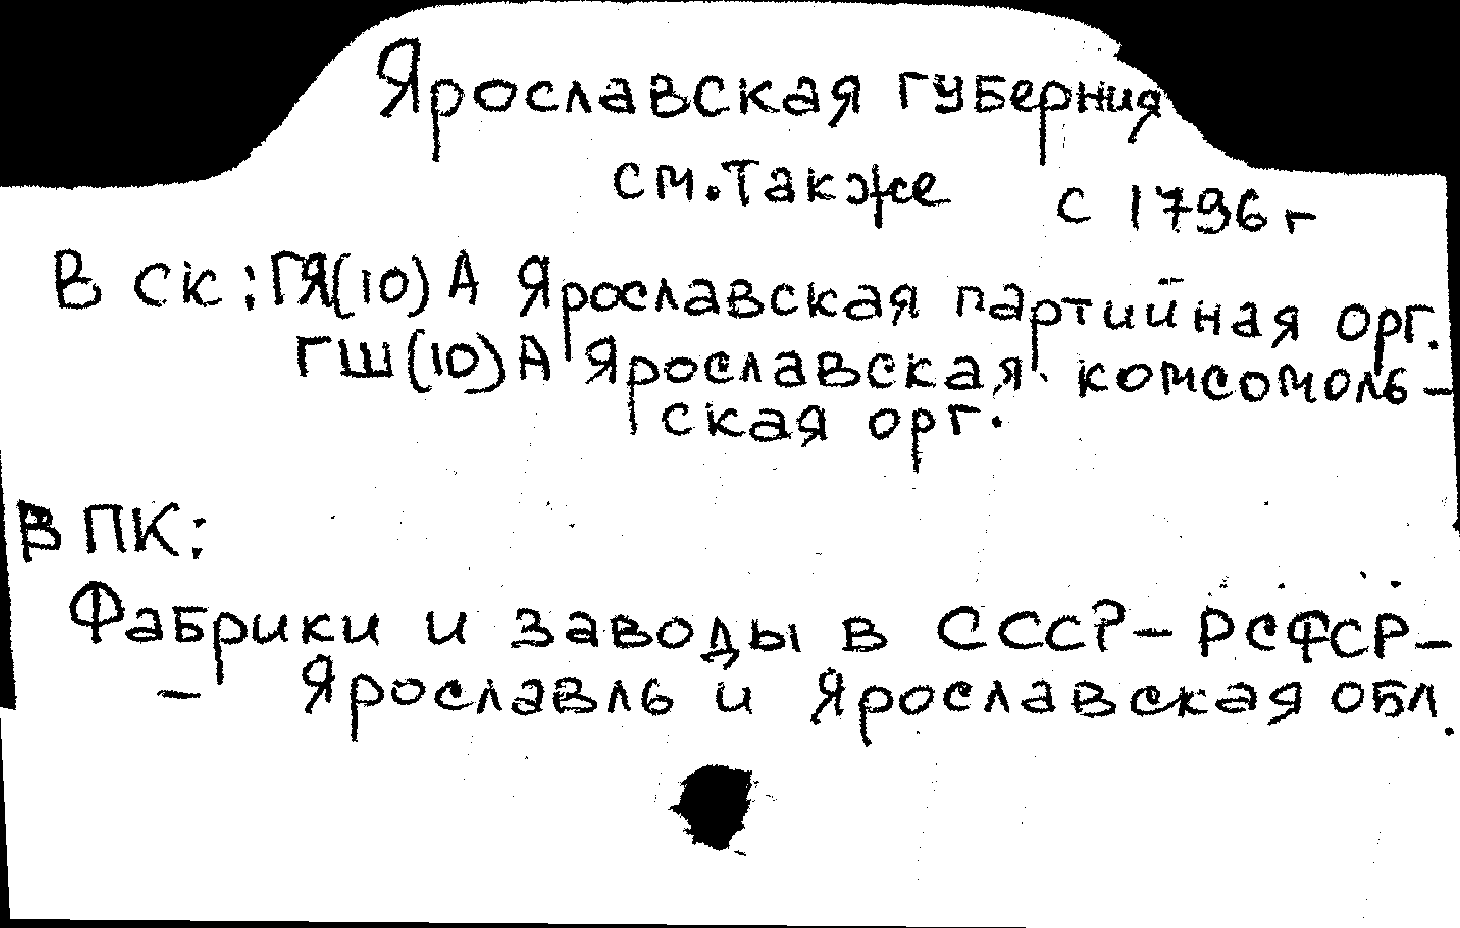 Ярославская губерния
см. также с 1796 г
В СК: ГЯ(10)А Ярославская партийная орг.
ГШ(10)А Ярославская комсомоль-
ская орг.
В ПК:
Фабрики и заводы в СССР - РСФСР -
- Ярославль и Ярославская обл.